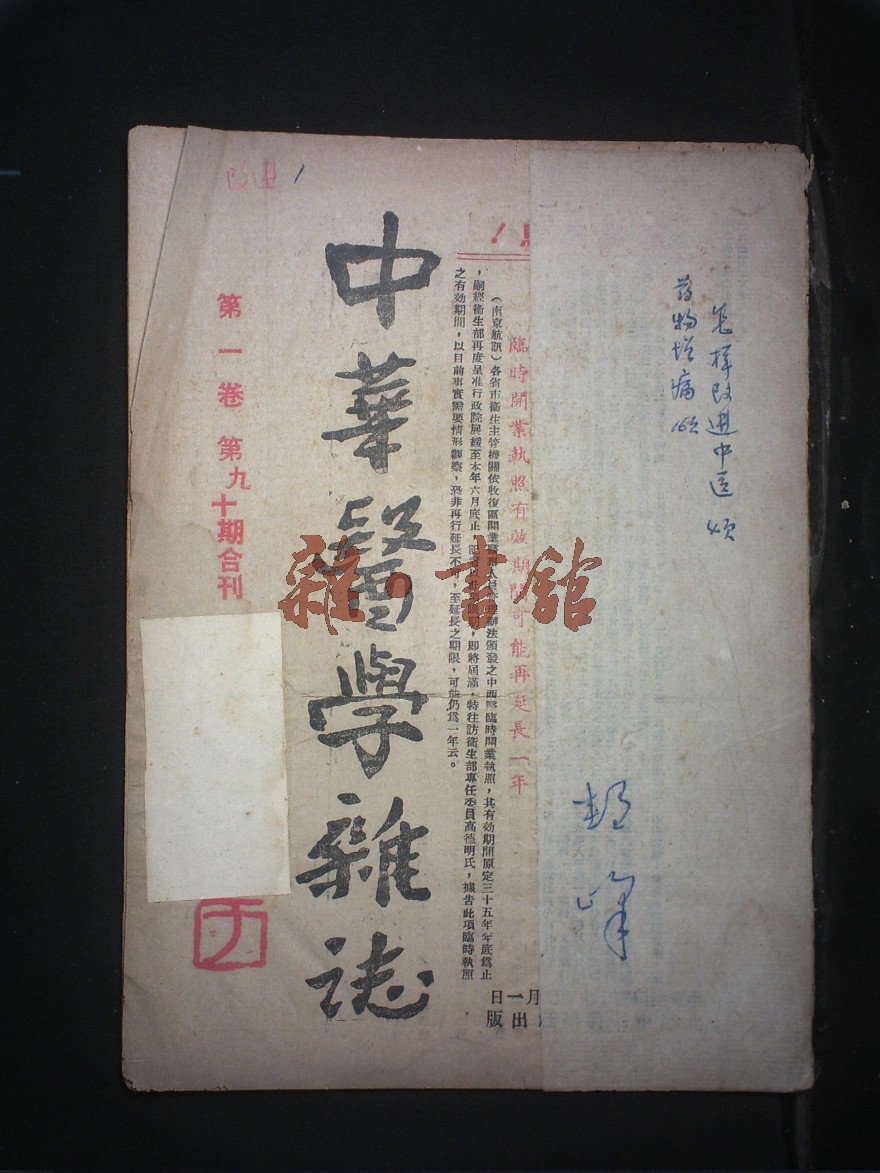 怎样改进中医
药物
！
臨時開業執照有效期間可能再延長一年
（南京航訊）各省市衞生主管機關依收復區開業醫
辦法頒發之中西醫臨時開業執照，其有效期間原定三十五年年底爲止
，嗣經衞生部再度呈准行政院展緩至本年六月底止，
即將屆滿，特往訪衞生部專任委員高德明氏，據告此項臨時執照
之有效期間，以目前事實需要情形觀察，恐非再行延長不可，至延長之期限，可能仍爲一年云。
月一日
出版
中華醫學雜誌
改进
第一卷 第九十期合刊
雜·書館
峰